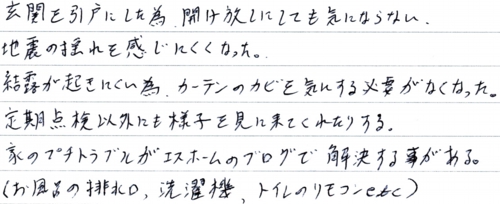 玄関を引戸にした為、開け放しにしても気にならない.
地震の揺れを感じにくくなった。
結露が起きにくい為、カーテンのカビを気にする必要がなくなった。
定期点検以外にも様子を見に来てくれたりする。
家のプチトラブルがエスホームのブログで解決する事がある。
(お風呂の排水口、洗濯機、トイレのリモコンetc)